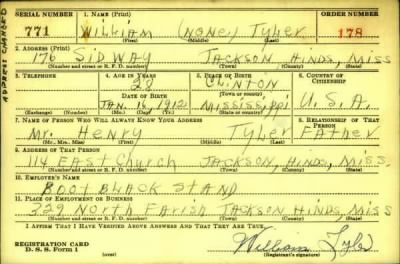 SERIAL NUMBER 1. NAME (Print) ORDER NUMBER
771 William (NONE) Tyler 178
(First) (Middle) (Last)
ADDRESS CHANGED
2. ADDRESS (Print)
176 Sidway Jackson Hinds, Miss
(Number and street or R. F. D. number) (Town) (County) (State)
3. TELEPHONE 4. AGE IN YEARS 5. PLACE OF BIRTH 6. COUNTRY OF CITIZENSHIP
28 Clinton
DATE OF BIRTH (Town or county)
Jan. 16, 1912 Mississippi U.S.A.
(Exchange) (Number) (Mo.) (Day) (Yr.) (State or country)
7. NAME OF PERSON WHO WILL ALWAYS KNOW YOUR ADDRESS 8. RELATIONSHIP OF THAT PERSON
Mr. Henry Tyler Father
(Mr., Mrs., Miss) (First) (Middle) (Last)
9. ADDRESS OF THAT PERSON
114 East Church Jackson, Hinds, Miss.
(Number and street or R. F. D. number) (Town) (County) (State)
10. EMPLOYER'S NAME
Boot Black Stand
11. PLACE OF EMPLOYMENT OR BUSINESS
329 North Farish Jackson Hinds, Miss
(Number and street or R. F. D. number) (Town) (County) (State)
I AFFIRM THAT I HAVE VERIFIED ABOVE ANSWERS AND THAT THEY ARE TRUE.
REGISTRATION CARD William Tyler
D. S. S. Form 1 (over) (Registrant's signature)